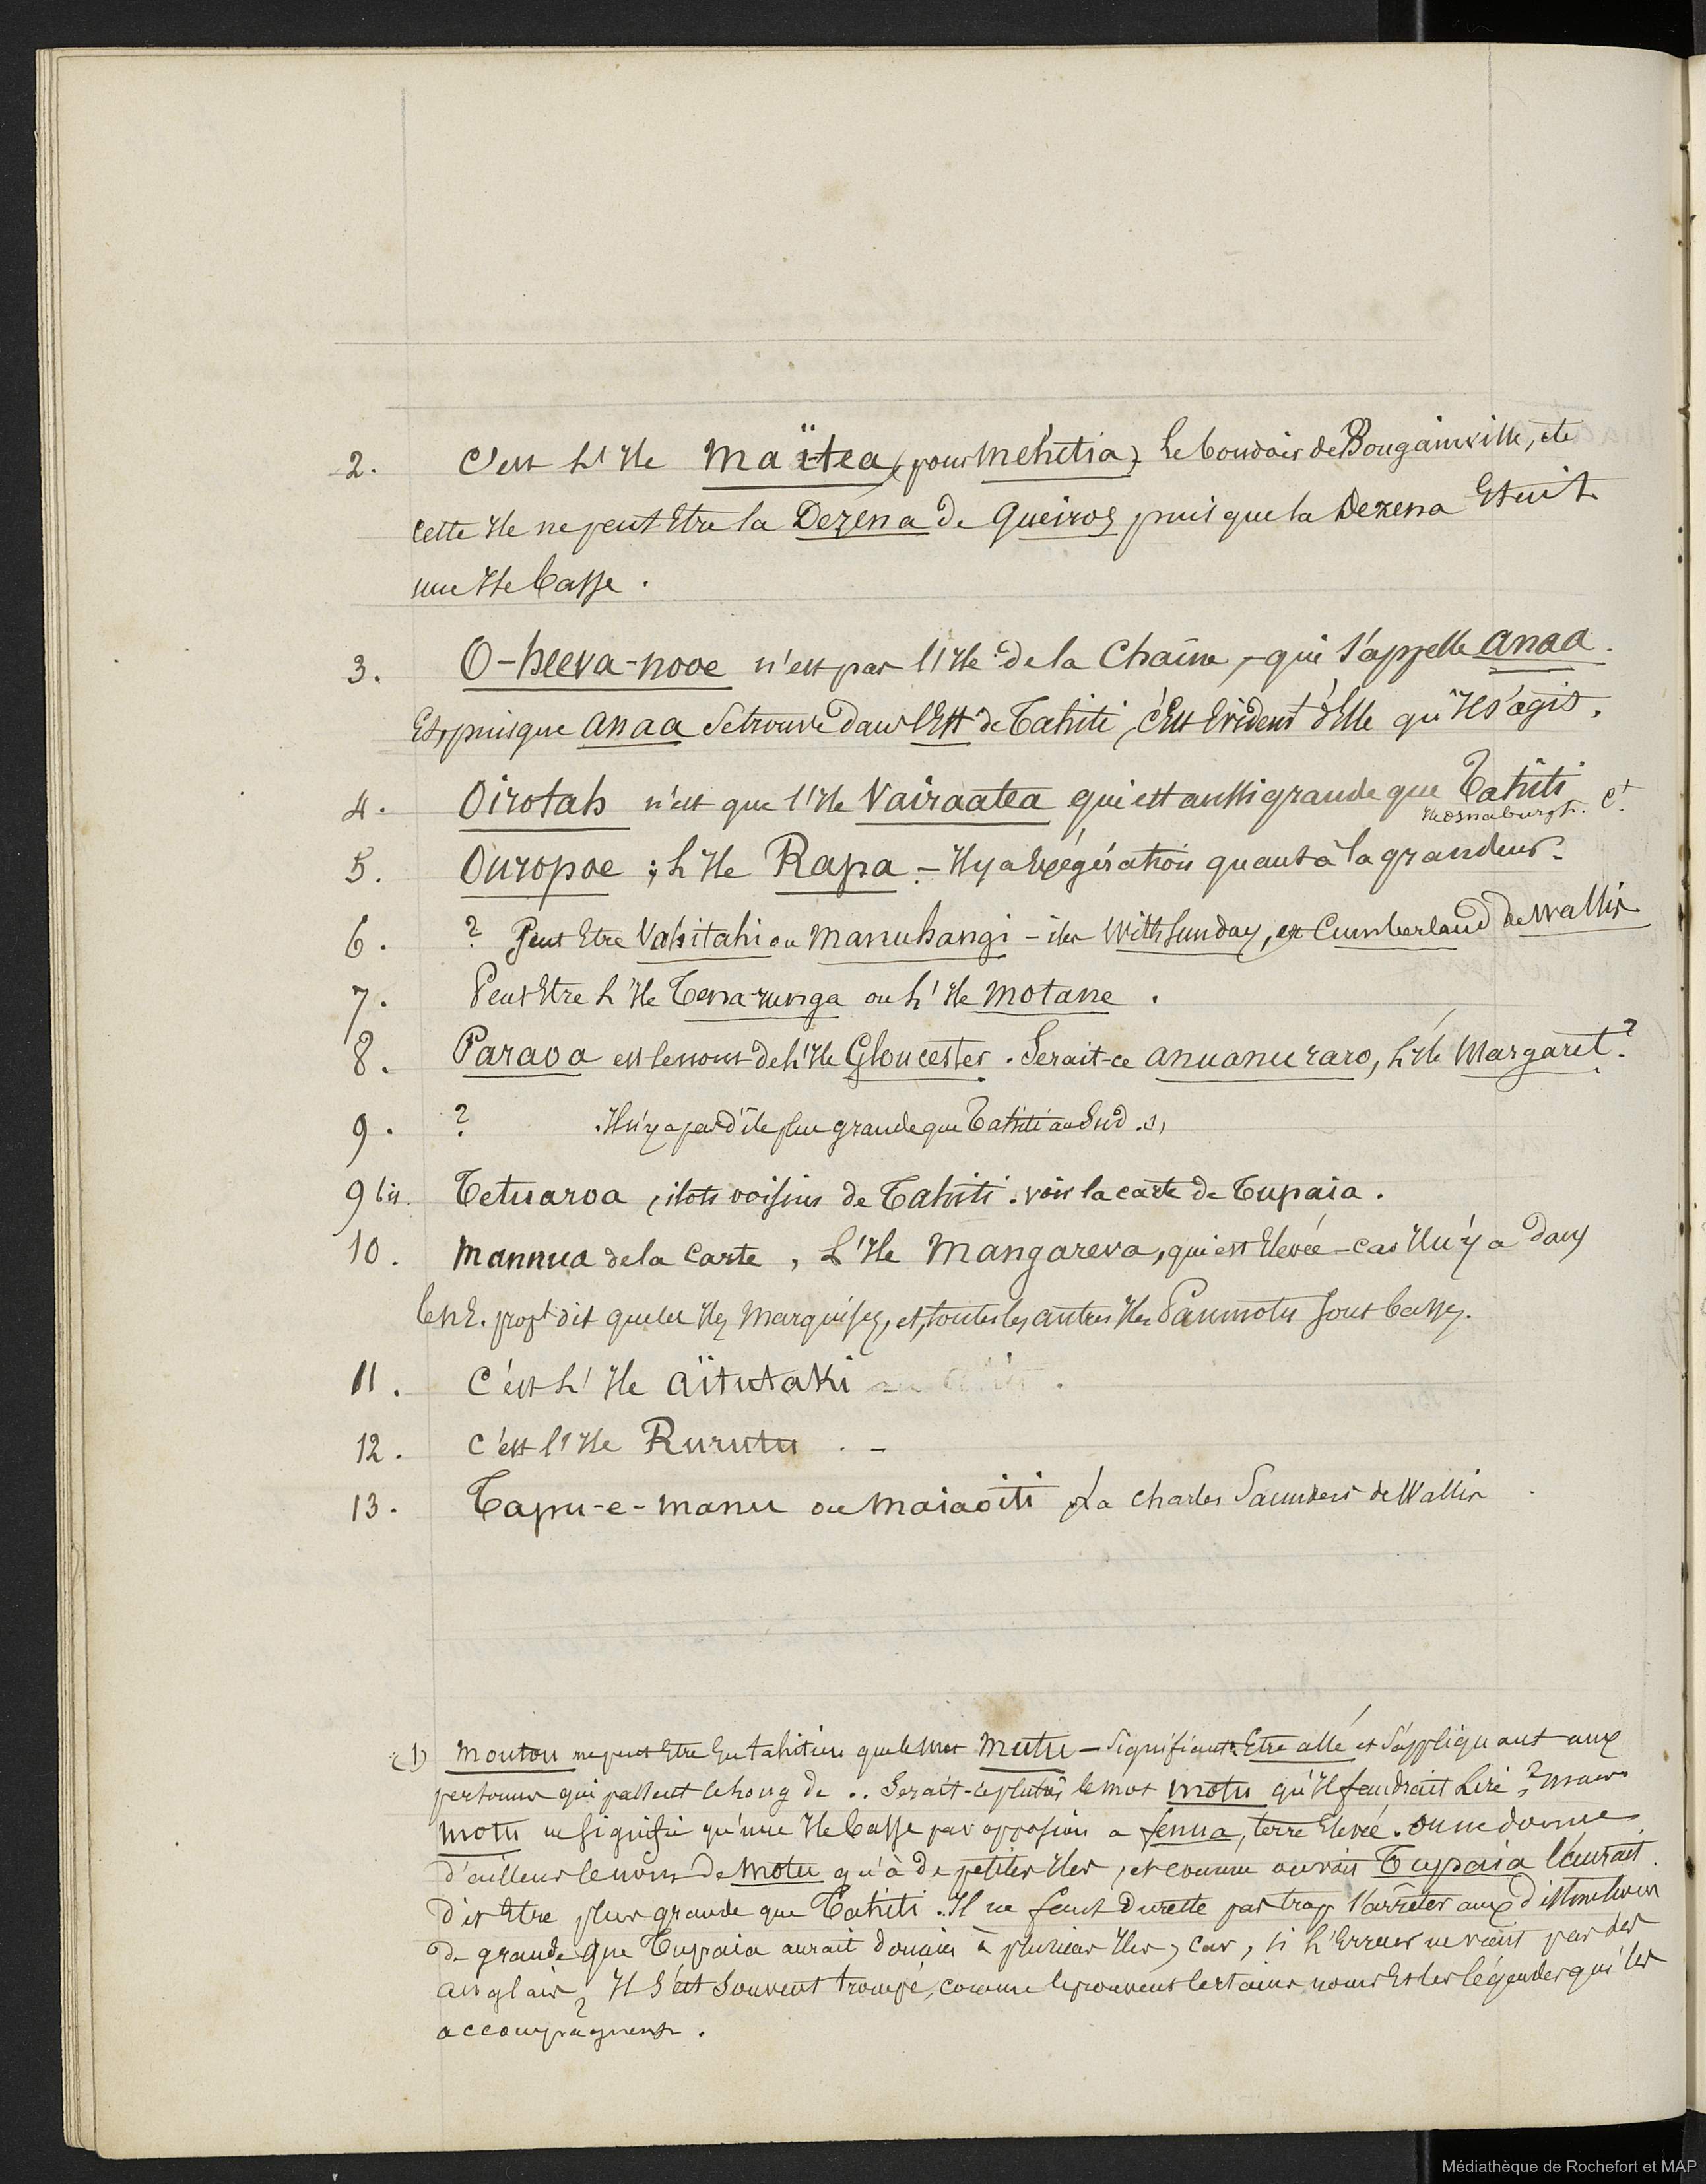 2. C'est l'Ile Maïtea (pour Mehetia) Le boudoir de Bougainville, et
cette Ile ne peut Etre la Dezena de Queiros puisque la Dezena Etait
une Ile basse.
3. O-heeva-nooe n'est pas l'Ile de la Chaîne, qui s'appelle anaa.
Et, puisque anaa se trouve dans l'Est de Tahiti, c'Est Evident d'Elle qu'Il s'agit.
4. Oirotah n'est que l'Ile Vairaatea qui est aussi grande que Tahiti
Ile Osnaburgh. Ct.
5. Ouropoe ; L'Ile Rapa - Il y a Exégération quant à la grandeur.
6. ? Peut Etre Vahitahi ou Manuhangi - iles With Sunday, et Cumberland de Wallis
7. Peut Etre L'Ile Tenarunga ou L'Ile Motane.
8. Paraoa est le nom de L'Ile Gloucester. Serait-ce anuanuraro, L'Ile Margaret?
9. ? Il n'y a pas d'île plus grande que Tahiti au Sud.
9 bis. Tetuaroa, ilots voisins de Tahiti. voir la carte de Tupaia.
10. Mannua de la Carte, L'Ile Mangareva, qui est Elevée - car Il n'y a dans
le N.E. propt dit que les Iles Marquises, et, toutes les autres Iles Paumotu sont basses.
11. C'est L'Ile aïtutaki
12. C'est l'Ile Rurutu. -
13. Tapu-e-manu ou Maiaoiti, La Charles Saunders de Wallis
(1) Moutou ne peut Etre En tahitien que le mot Mutu - signifiant Etre allé et s'appliquant aux
personnes qui passent le long de .. Serait-ce plutôt le mot motu qu'Il faudrait Lire? mais
motu ne signifie qu'une Ile basse par opposion a fenua, terre Elevée. on ne donne
d'ailleurs le nom de motu qu'à de petites Iles, et comme on voit Tupaia l'aurait
dit Etre plus grande que Tahiti. Il ne faut du reste pas trop s'arrêter aux distinctions
de grande que Tupaia aurait données à plusieurs Iles, car, si L'Erreur ne vient pas des
anglais, Il s'est souvent trompé, comme le prouvent certains noms Et les légendes qui les
accompagnent.
Médiathèque de Rochefort et MAP